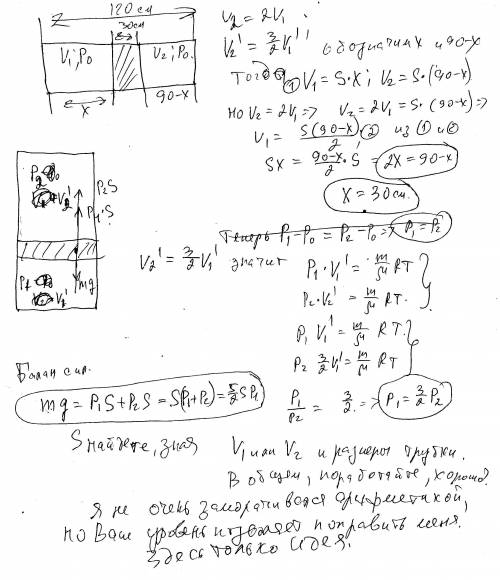 120 см
30см
V₁; P₀ V₂; P₀
x 90-x
V₂ = 2V₁
V₂' = 3/2 V₁'
обозначим x и 90-x
Тогда ① V₁ = S·x; V₂ = S·(90-x)
но V₂ = 2V₁ => V₂ = 2V₁ = S·(90-x) =>
V₁ = S(90-x)/2 ② из ① и ②
Sx = (90-x)/2 · S = 2x = 90-x
x = 30 см.
P₂ V₂' P₂S
P₁S
mg
P₁ V₁'
Теперь P₁-P₀ = P₂-P₀ => P₁ = P₂
V₂' = 3/2 V₁' значит
P₁·V₁' = m/μ RT
P₂·V₂' = m/μ RT.
P₁ V₁' = m/μ RT.
P₂ 3/2 V₁' = m/μ RT
P₁/P₂ = 3/2. => P₁ = 3/2 P₂
Балан сил.
mg = P₁S + P₂S = S(P₁+P₂) = 5/2 SP₁
S найдете, зная V₁ или V₂ и размеры трубки.
В общем, поработайте, хорошо.
Я не очень заморачивался арифметикой,
но Ваш уровень позволяет поправить меня.
Здесь только идея.